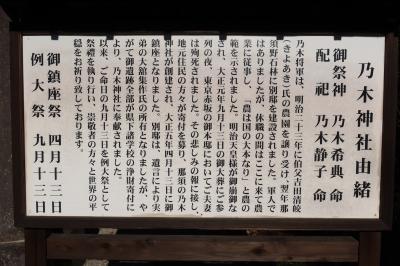 乃木神社由緒
御祭神 乃木希典命
配祀 乃木静子命
乃木将軍は、明治二十三年に伯父吉田清皎
(きよあき)氏の農園を譲り受け、翌年那
須野石林に別邸を建設されました。軍人で
はありましたが、休職の間はここに来て農
業に従事し、「農は国の大本なり」と農の
範を示されました。明治天皇様が御崩御な
され、大正元年九月十三日の御大葬にご参
列の夜、東京赤坂の御本邸においてご夫妻
は殉死されました。その悲しみの報に接し、
地元の住民の方々が寄付を募り、那須の乃木
神社が創建され、大正五年四月十三日に御
鎮座となりました。別邸は、遺言により実
弟の大舘集作氏の所有となりましたが、や
がて御遺跡全部が県下諸学校の浄財寄付に
より、乃木神社に奉献されました。
以来、ご命日の九月十三日を例大祭として
祭禮を執り行い、崇敬者の方々と世界の平
穏をお祈り致しております。
御鎮座祭 四月十三日
例大祭 九月十三日